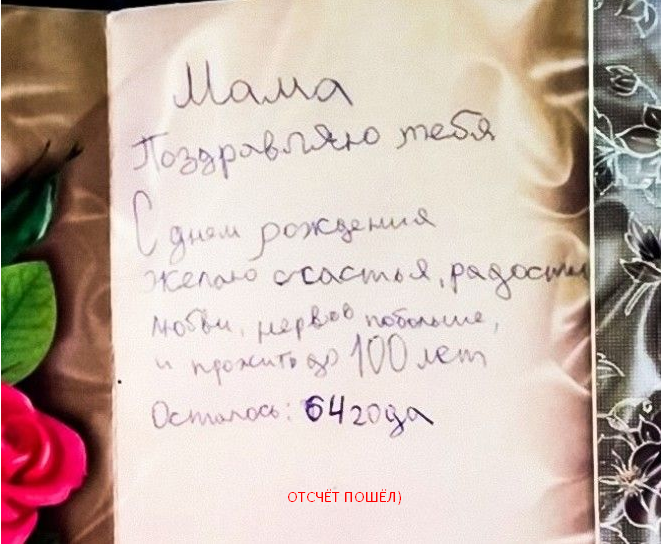 Мама
Поздравляю тебя
С днем рождения
желаю счастья, радости
любви, нервов побольше,
и прожить до 100 лет
Осталось: 64 года
ОТСЧЁТ ПОШЁЛ)